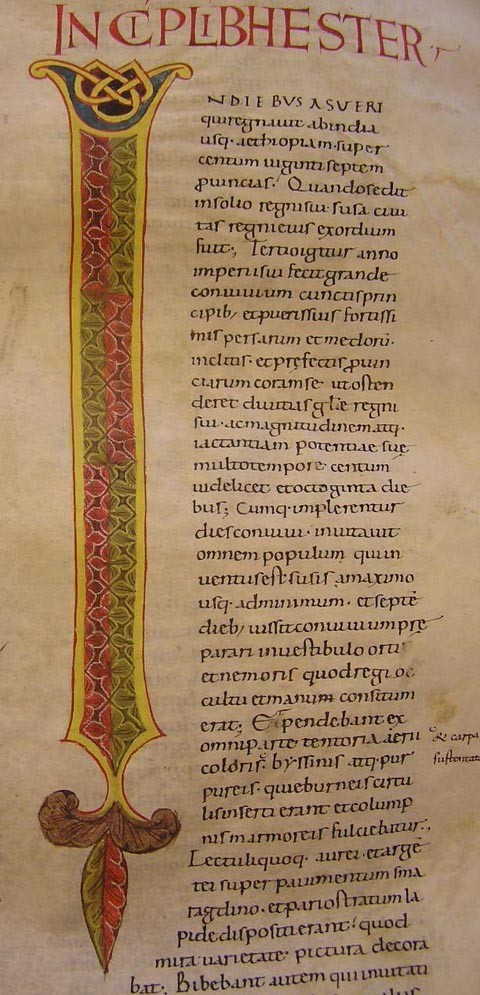 INCIP LIB HESTER
N DIEBUS ASUERI
qui regnavit ab india
usq· aethiopiam super
centum viginti septem
provincias· Quando sedit
in solio regni sui· susa civi
tas regni eius exordium
fuit·, Tertio igitur anno
imperii sui fecit grande
convivium cunctis prin
cipib; et pueris suis fortissi
mis persarum et medorū·
inclitis· et pręfectis provin
ciarum coram se· ut osten
deret divitias glæ regni
sui· ac magnitudinem atq·
iactantiam potentiae suę
multo tempore· centum
videlicet et octoginta die
bus; Cumq· implerentur
dies convivii· invitavit
omnem populum qui in
ventus est susis a maximo
usq· ad minimum· et septē
dieb; iussit convivium pre
parari in vestibulo orti
et nemoris quod regio
cultu et manu consitum
erat; Et pendebant ex
omni parte tentoria aerii
coloris· byssinis atq· pur
pureis· qui eburneis circu
lis inserti erant et colump
nis marmoreis fulciebatur·,
Lectuli quoq· aurei· et argē
tei super pavimentum sma
ragdino· et pario stratum la
pide dispositi erant· quod
mira varietate· pictura decora
bat· Bibebant autem qui invitati